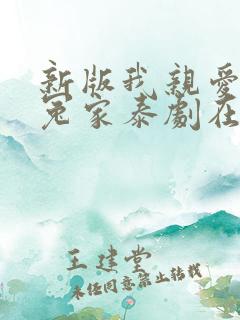 新版我親愛
冤家泰劇在
王建堂
未经同意禁止转载